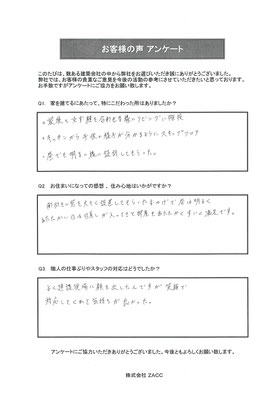 お客様の声 アンケート
このたびは、数ある建築会社の中から弊社をお選びいただき誠にありがとうございました。
弊社では、お客様の貴重なご意見を今後の活動の参考にさせていただきたいと思っております。
お手数ですがアンケートにご協力をお願い致します。
Q1. 家を建てるにあたって、特にこだわった所はありましたか?
・家族と必ず顔を合わせる様にリビングに階段
・キッチンから子供の様子が分かるようにスキップフロア
・昼でも明るい様に設計してもらった。
Q2. お住まいになっての感想 、住み心地はいかがですか?
南向きの窓を大きく設置してもらったおかげで昼は明るく
あたたかい日は日差しが入ってきて部屋もあたたかくすごく満足です。
Q3. 職人の仕事ぶりやスタッフの対応はどうでしたか?
よく建設現場に顔を出したんですが笑顔で
対応してくれて気持ちが良かった。
アンケートにご協力いただきありがとうございました。今後ともよろしくお願い致します。
株式会社 ZACC